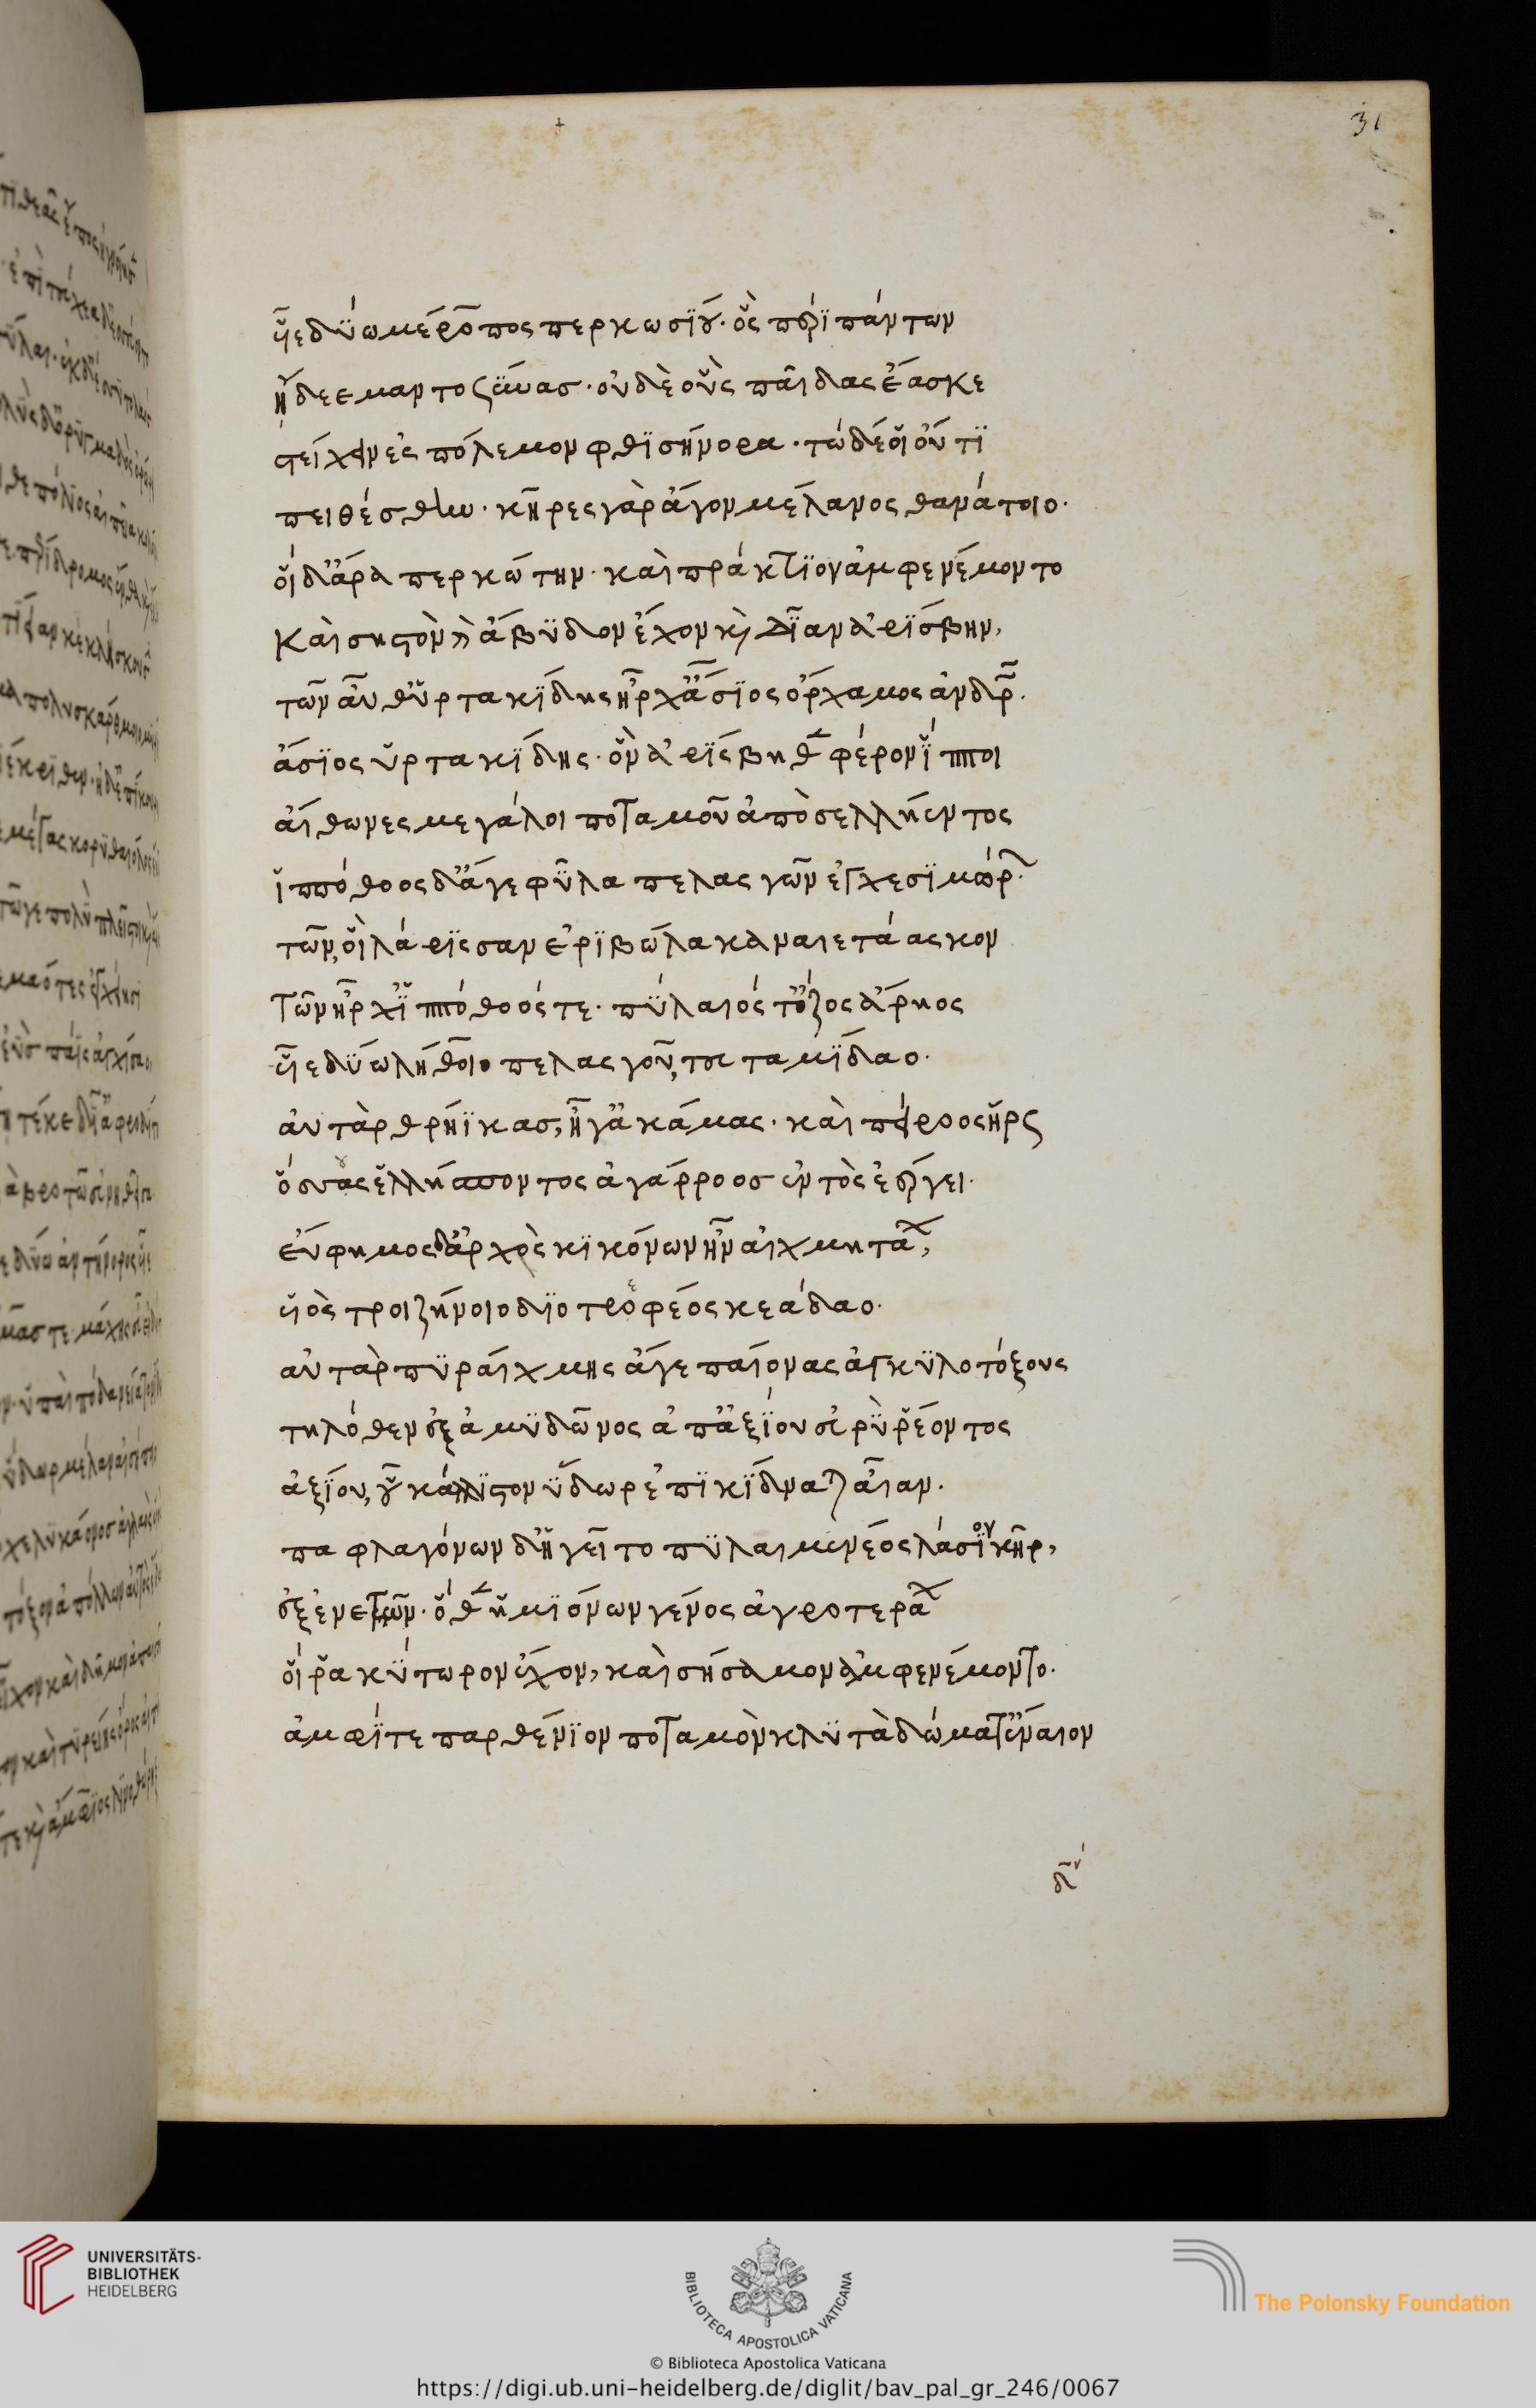 31
υἷε δύω μέροπος περκωσίου· ὃς περὶ πάντων
ᾔδεε μαντοσύνασ· οὐδὲ οὓς παῖδας ἔασκε
στείχειν ἐς πόλεμον φθισήνορα· τὼ δέ οἱ οὔ τι
πειθέσθην· κῆρες γὰρ ἄγον μέλανος θανάτοιο·
οἳ δ' ἄρα περκώτην· καὶ πράκτιον ἀμφενέμοντο
Καὶ σηστὸν καὶ ἄβυδον ἔχον καὶ δῖαν ἀρίσβην,
τῶν αὖθ' ὑρτακίδης ἦρχ' ἄσιος ὄρχαμος ἀνδρῶν·
ἄσιος ὑρτακίδης· ὃν ἀρίσβηθεν φέρον ἵπποι
αἴθωνες μεγάλοι ποταμοῦ ἀπὸ σελλήεντος
ἱππόθοος δ' ἄγε φῦλα πελασγῶν ἐγχεσιμώρων·
τῶν, οἳ λάρισσαν ἐριβώλακα ναιετάασκον
Τῶν ἦρχ' ἱππόθοός τε· πύλαιός τ' ὄζος ἄρηος
υἷε δύω λήθοιο πελασγοῦ, τευταμίδαο·
αὐτὰρ θρήϊκασ, ἦγ' ἀκάμας· καὶ πείροος ἥρως
ὅσσους ἑλλήσποντος ἀγάρροοσ ἐντὸς ἐέργει·
εὔφημος δ' ἀρχὸς κικόνων ἦν αἰχμητάων,
υἱὸς τροιζήνοιο διοτρεφέος κεάδαο·
αὐτὰρ πυραίχμης ἄγε παίονας ἀγκυλοτόξους
τηλόθεν ἐξ ἀμυδῶνος ἀπ' ἀξίου εὐρὺ ῥέοντος
ἀξίου, οὗ κάλλιστον ὕδωρ ἐπικίδναται αἶαν·
παφλαγόνων δ' ἡγεῖτο πυλαιμένεος λάσιον κῆρ,
ἐξ ἐνετῶν· ὅθεν ἡμιόνων γένος ἀγροτεράων
οἵ ῥα κύτωρον ἔχον, καὶ σήσαμον ἀμφενέμοντο·
ἀμφί τε παρθένιον ποταμὸν κλυτὰ δώματ' ἔναιον
UNIVERSITÄTS-
BIBLIOTHEK
HEIDELBERG
BIBLIOTECA APOSTOLICA VATICANA
The Polonsky Foundation
© Biblioteca Apostolica Vaticana
https://digi.ub.uni-heidelberg.de/diglit/bav_pal_gr_246/0067